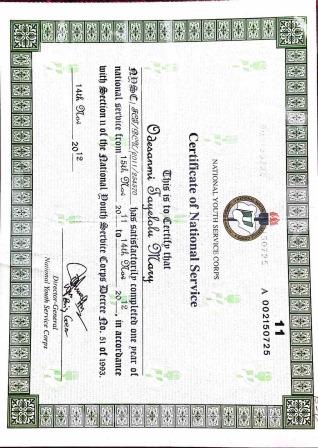 11
A 002150725
NATIONAL YOUTH SERVICE CORPS
Certificate of National Service
This is to Certify that
Odesanmi Tayelolu Mary
has satisfactorily completed one year of
national service from 15th Nov 2011 to 14th Nov 2012, in accordance
with Section 11 of the National Youth Service Corps Decree No. 51 of 1993.
14th Nov 2012
Director-General
National Youth Service Corps